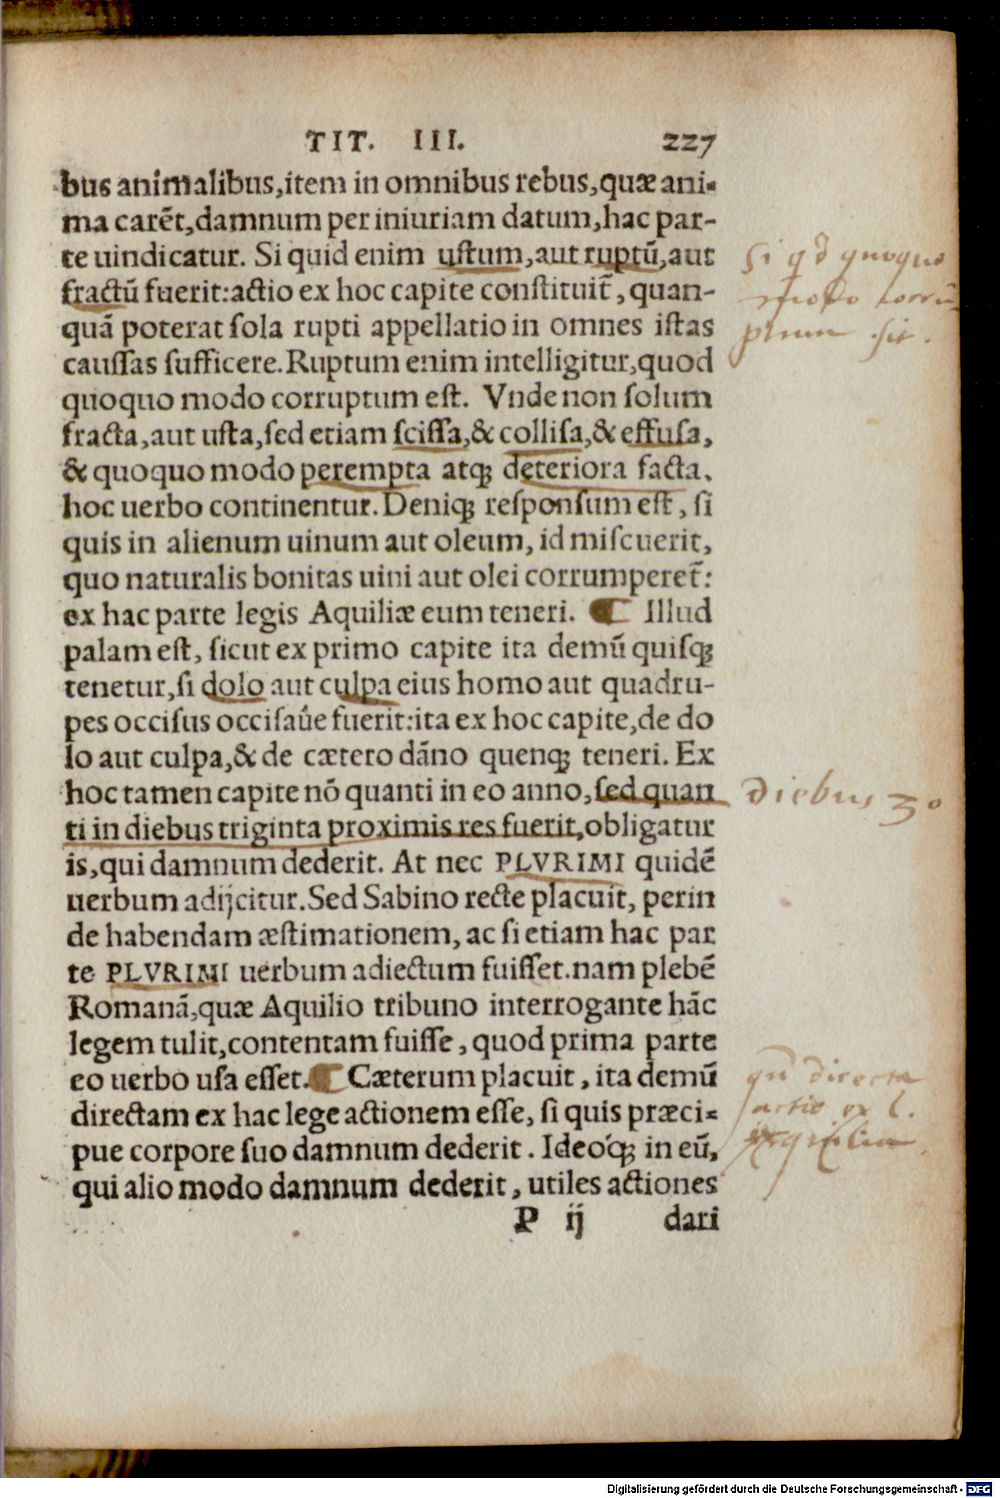 TIT. III. 227
bus animalibus,item in omnibus rebus,quæ ani-
ma carẽt,damnum per iniuriam datum,hac par-
te uindicatur. Si quid enim ustum,aut ruptũ,aut
fractũ fuerit:actio ex hoc capite constituit̃, quan-
quã poterat sola rupti appellatio in omnes istas
caussas sufficere.Ruptum enim intelligitur,quod
quoquo modo corruptum est. Vnde non solum
fracta,aut usta,sed etiam scissa,& collisa,& effusa,
& quoquo modo perempta atq; deteriora facta,
hoc uerbo continentur.Deniq; responsum est, si
quis in alienum uinum aut oleum, id miscuerit,
quo naturalis bonitas uini aut olei corrumperet̃:
ex hac parte legis Aquiliæ eum teneri. ¶ Illud
palam est, sicut ex primo capite ita demũ quisq;
tenetur,si dolo aut culpa eius homo aut quadru-
pes occisus occisaûe fuerit:ita ex hoc capite,de do
lo aut culpa,& de cætero dãno quenq; teneri. Ex
hoc tamen capite nõ quanti in eo anno,sed quan
ti in diebus triginta proximis res fuerit,obligatur
is,qui damnum dederit. At nec PLVRIMI quidẽ
uerbum adijcitur.Sed Sabino recte placuit, perin
de habendam æstimationem, ac si etiam hac par
te PLVRIMI uerbum adiectum fuisset.nam plebẽ
Romanã,quæ Aquilio tribuno interrogante hãc
legem tulit,contentam fuisse, quod prima parte
eo uerbo usa esset.¶ Cæterum placuit, ita demũ
directam ex hac lege actionem esse, si quis præci-
pue corpore suo damnum dederit. Ideóq; in eũ,
qui alio modo damnum dederit, utiles actiones
P ij dari
Si qd quoquo
modo corrũ
ptum sit.
diebus 30
qñ directa
actio ex l.
Aquilia
Digitalisierung gefördert durch die Deutsche Forschungsgemeinschaft - DFG